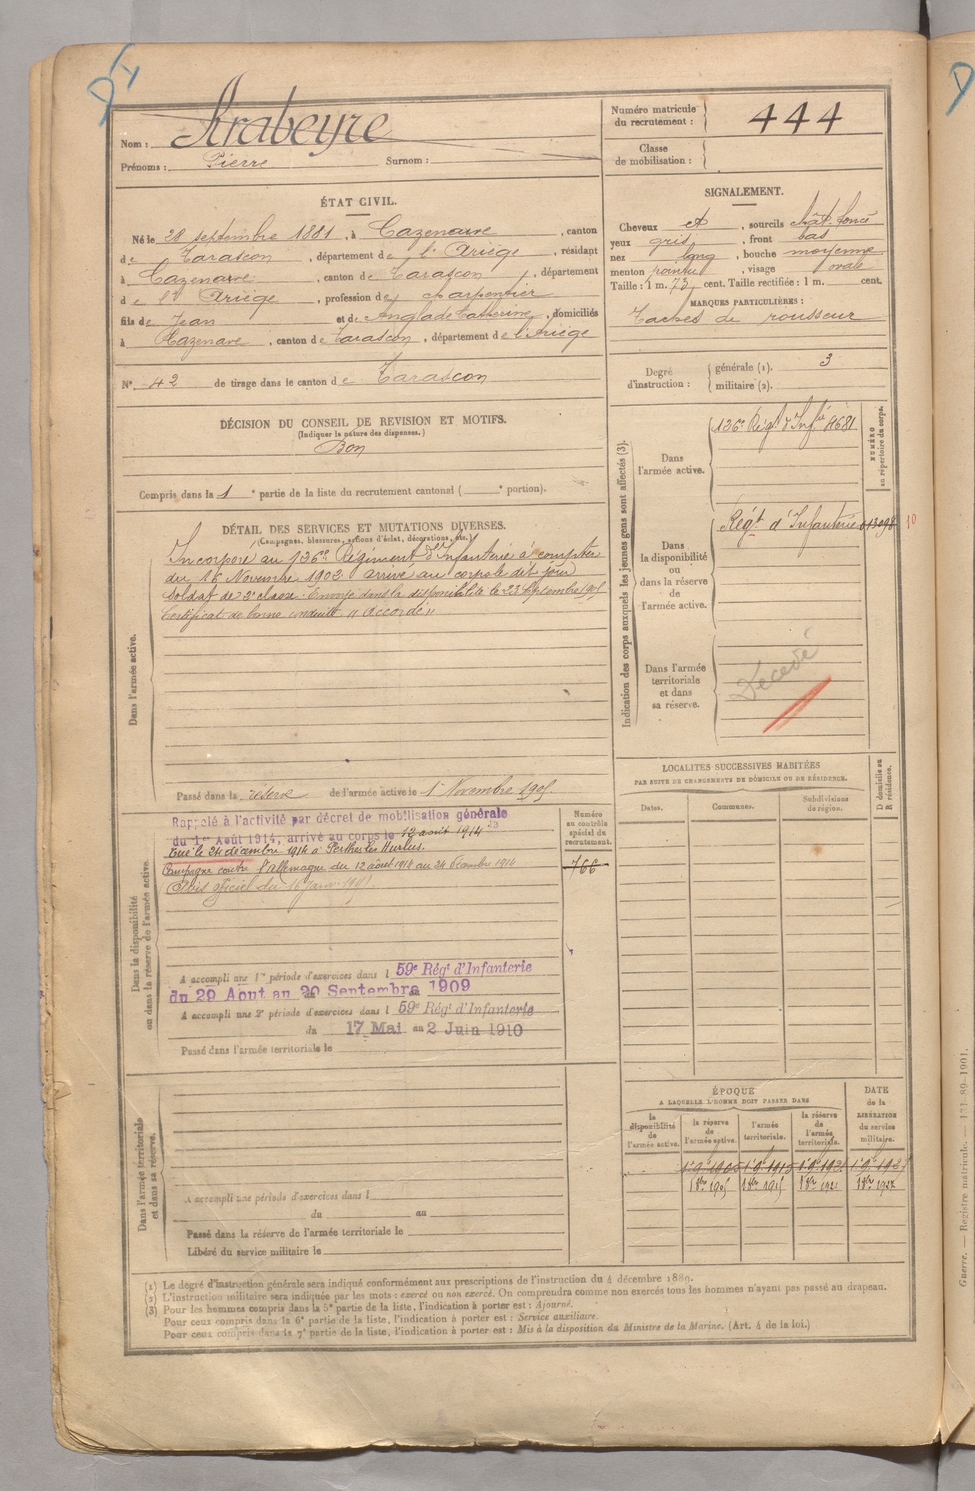 Nom : Arabeyre
Prénoms : Pierre Surnom :
Numéro matricule du recrutement : 444
Classe de mobilisation :
ÉTAT CIVIL.
Né le 28 septembre 1881, à Cazenave, canton
de Tarascon, département de l'Ariège, résidant
à Cazenave, canton de Tarascon, département
de l'Ariège, profession de charpentier
fils de Jean et de Anglade Catherine, domiciliés
à Cazenave, canton de Tarascon, département de l'Ariège
N° 42 de tirage dans le canton de Tarascon
SIGNALEMENT.
Cheveux et, sourcils chât. foncé
yeux gris, front bas
nez long, bouche moyenne
menton pointu, visage ovale
Taille : 1 m. 73 cent. Taille rectifiée : 1 m. cent.
MARQUES PARTICULIÈRES :
Taches de rousseur
Degré d'instruction : générale (1). 3
militaire (2).
DÉCISION DU CONSEIL DE REVISION ET MOTIFS.
(Indiquer la nature des dispenses.)
Bon
Compris dans la 1e partie de la liste du recrutement cantonal ( e portion).
DÉTAIL DES SERVICES ET MUTATIONS DIVERSES.
(Campagnes, blessures, actions d'éclat, décorations, etc.)
Dans l'armée active.
Incorporé au 136e Régiment d'Infanterie à compter
du 16 Novembre 1902 arrivé au corps le dit jour
Soldat de 2e classe. Envoyé dans la disponibilité le 23 Septembre 1905
Certificat de bonne conduite "Accordé"
Passé dans la réserve de l'armée active le 1 Novembre 1905
Indication des corps auxquels les jeunes gens sont affectés (3).
NUMÉRO au répertoire du corps.
Dans l'armée active.
136e Régt d'Infie 4681
Dans la disponibilité ou dans la réserve de l'armée active.
Régt d'Infanterie 10
Dans l'armée territoriale et dans sa réserve.
Décédé
LOCALITÉS SUCCESSIVES HABITÉES
PAR SUITE DE CHANGEMENTS DE DOMICILE OU DE RÉSIDENCE.
Dates. Communes. Subdivisions de région. D domicile ou R résidence.
Dans la disponibilité ou dans la réserve de l'armée active.
Rappelé à l'activité par décret de mobilisation générale
du 1er Août 1914, arrivé au corps le 12 août 1914
Tué le 24 décembre 1914 à Perthes les Hurlus.
Campagne contre l'allemagne du 12 août 1914 au 24 décembre 1914
(Avis officiel du 16 janv.
Numéro au contrôle spécial du recrutement.
766
A accompli une 1re période d'exercices dans l 59e Régt d'Infanterie
du 29 Aout au 20 Septembre 1909
A accompli une 2e période d'exercices dans l 59e Régt d'Infanterie
du 17 Mai au 2 Juin 1910
Passé dans l'armée territoriale le
Dans l'armée territoriale et dans sa réserve.
A accompli une période d'exercices dans l
du au
Passé dans la réserve de l'armée territoriale le
Libéré du service militaire le
ÉPOQUE
A LAQUELLE L'HOMME DOIT PASSER DANS
DATE de la LIBÉRATION du service militaire.
la disponibilité de l'armée active. la réserve de l'armée active. l'armée territoriale. la réserve de l'armée territoriale.
1 9e 1905 1 9e 1915 1 9e 1921 1 9e 1927
1 9bre 1905 1 9bre 1915 1 9bre 1921 1 9bre 1927
(1) Le degré d'instruction générale sera indiqué conformément aux prescriptions de l'instruction du 4 décembre 1889.
(2) L'instruction militaire sera indiquée par les mots : exercé ou non exercé. On comprendra comme non exercés tous les hommes n'ayant pas passé au drapeau.
(3) Pour les hommes compris dans la 5e partie de la liste, l'indication à porter est : Ajourné.
Pour ceux compris dans la 6e partie de la liste, l'indication à porter est : Service auxiliaire.
Pour ceux compris dans la 7e partie de la liste, l'indication à porter est : Mis à la disposition du Ministre de la Marine. (Art. 4 de la loi.)
Guerre. — Registre matricule. — 121-89-1901.